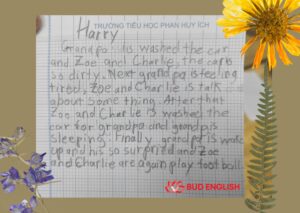 TRƯỜNG TIỂU HỌC PHAN HUY ÍCH
Harry
Grandpa is washed the car
and Zoe and Charlie, the car is
so dirty. Next grandpa is feeling
tired, Zoe and Charlie is talk
about some thing. After that
Zoo and Charlie is washed the
car for grandpa and grandpa is
sleeping. Finally grandpa is wake
up and his so surprized and Zoe
and Charlie are again play foot ball.
BUD ENGLISH